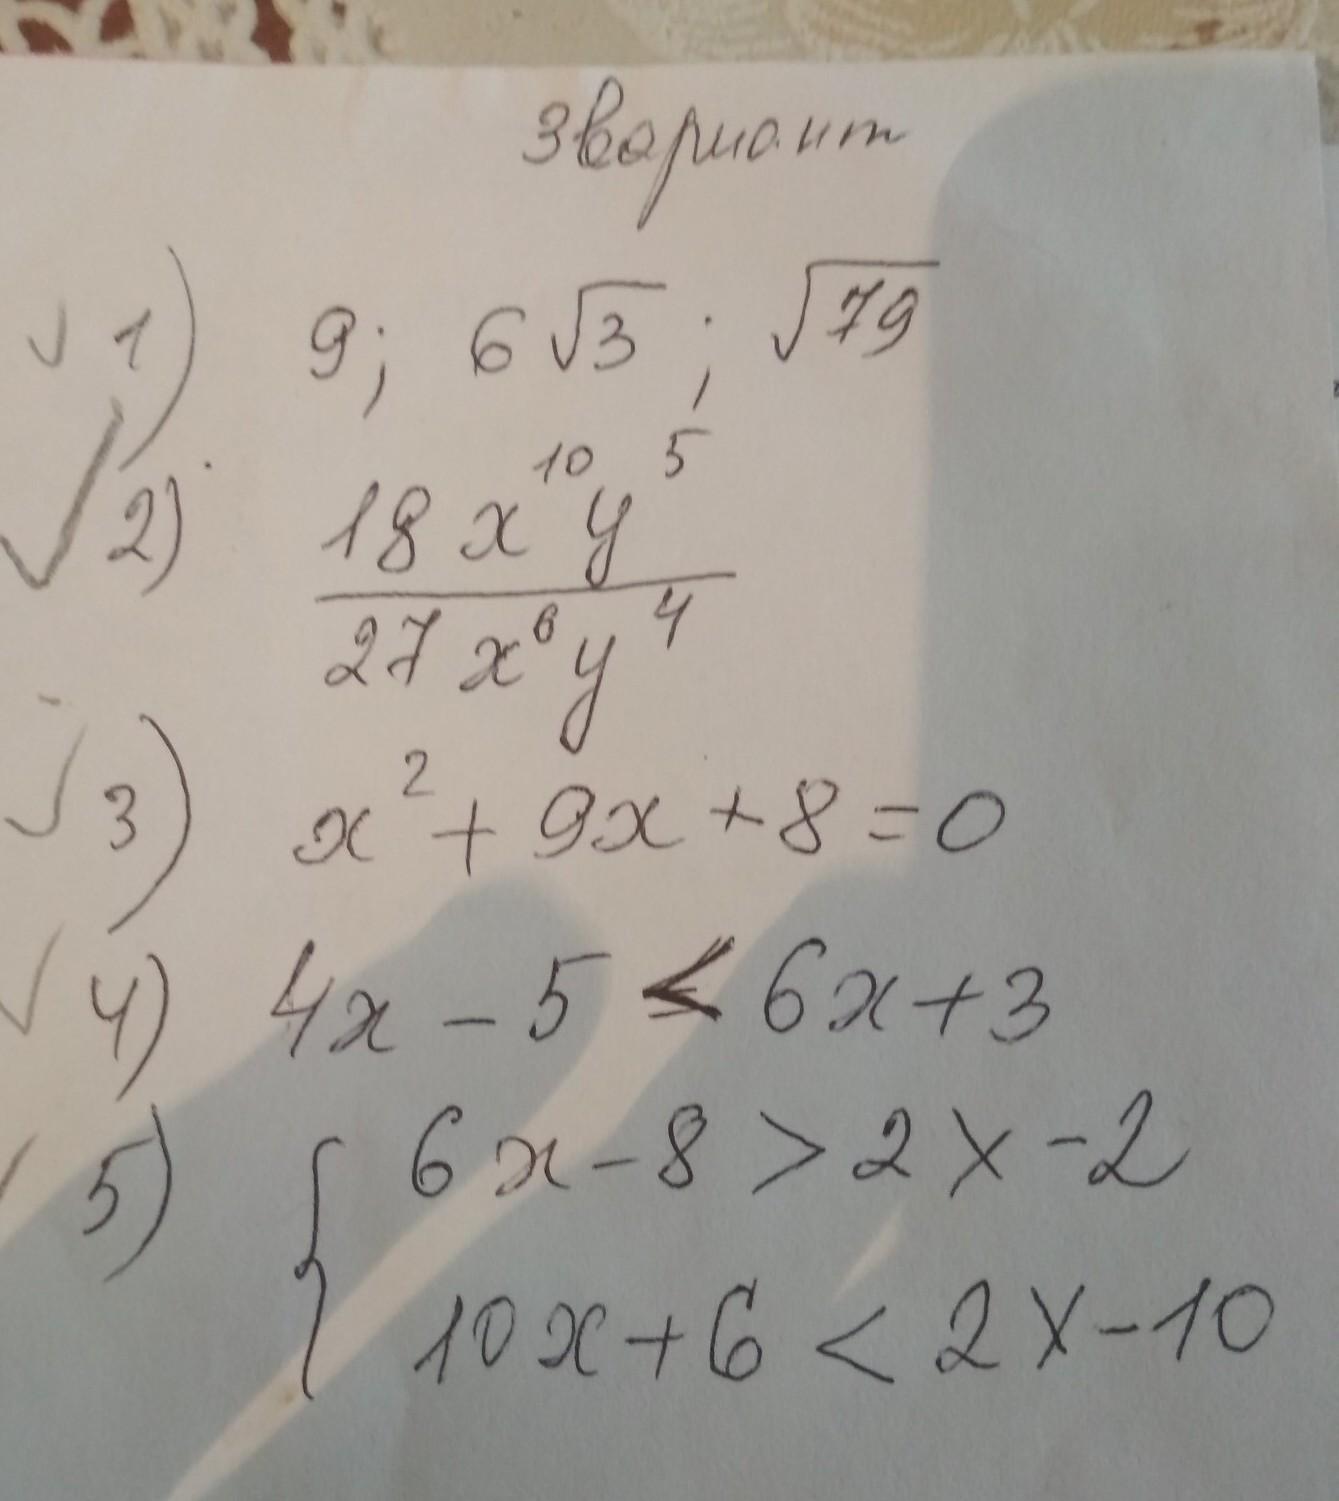 3 вариант
√ 1) 9; 6√3; √79
√ 2) 18x¹⁰y⁵ / 27x⁶y⁴
√ 3) x² + 9x + 8 = 0
√ 4) 4x - 5 < 6x + 3
√ 5) { 6x - 8 > 2x - 2
10x + 6 < 2x - 10